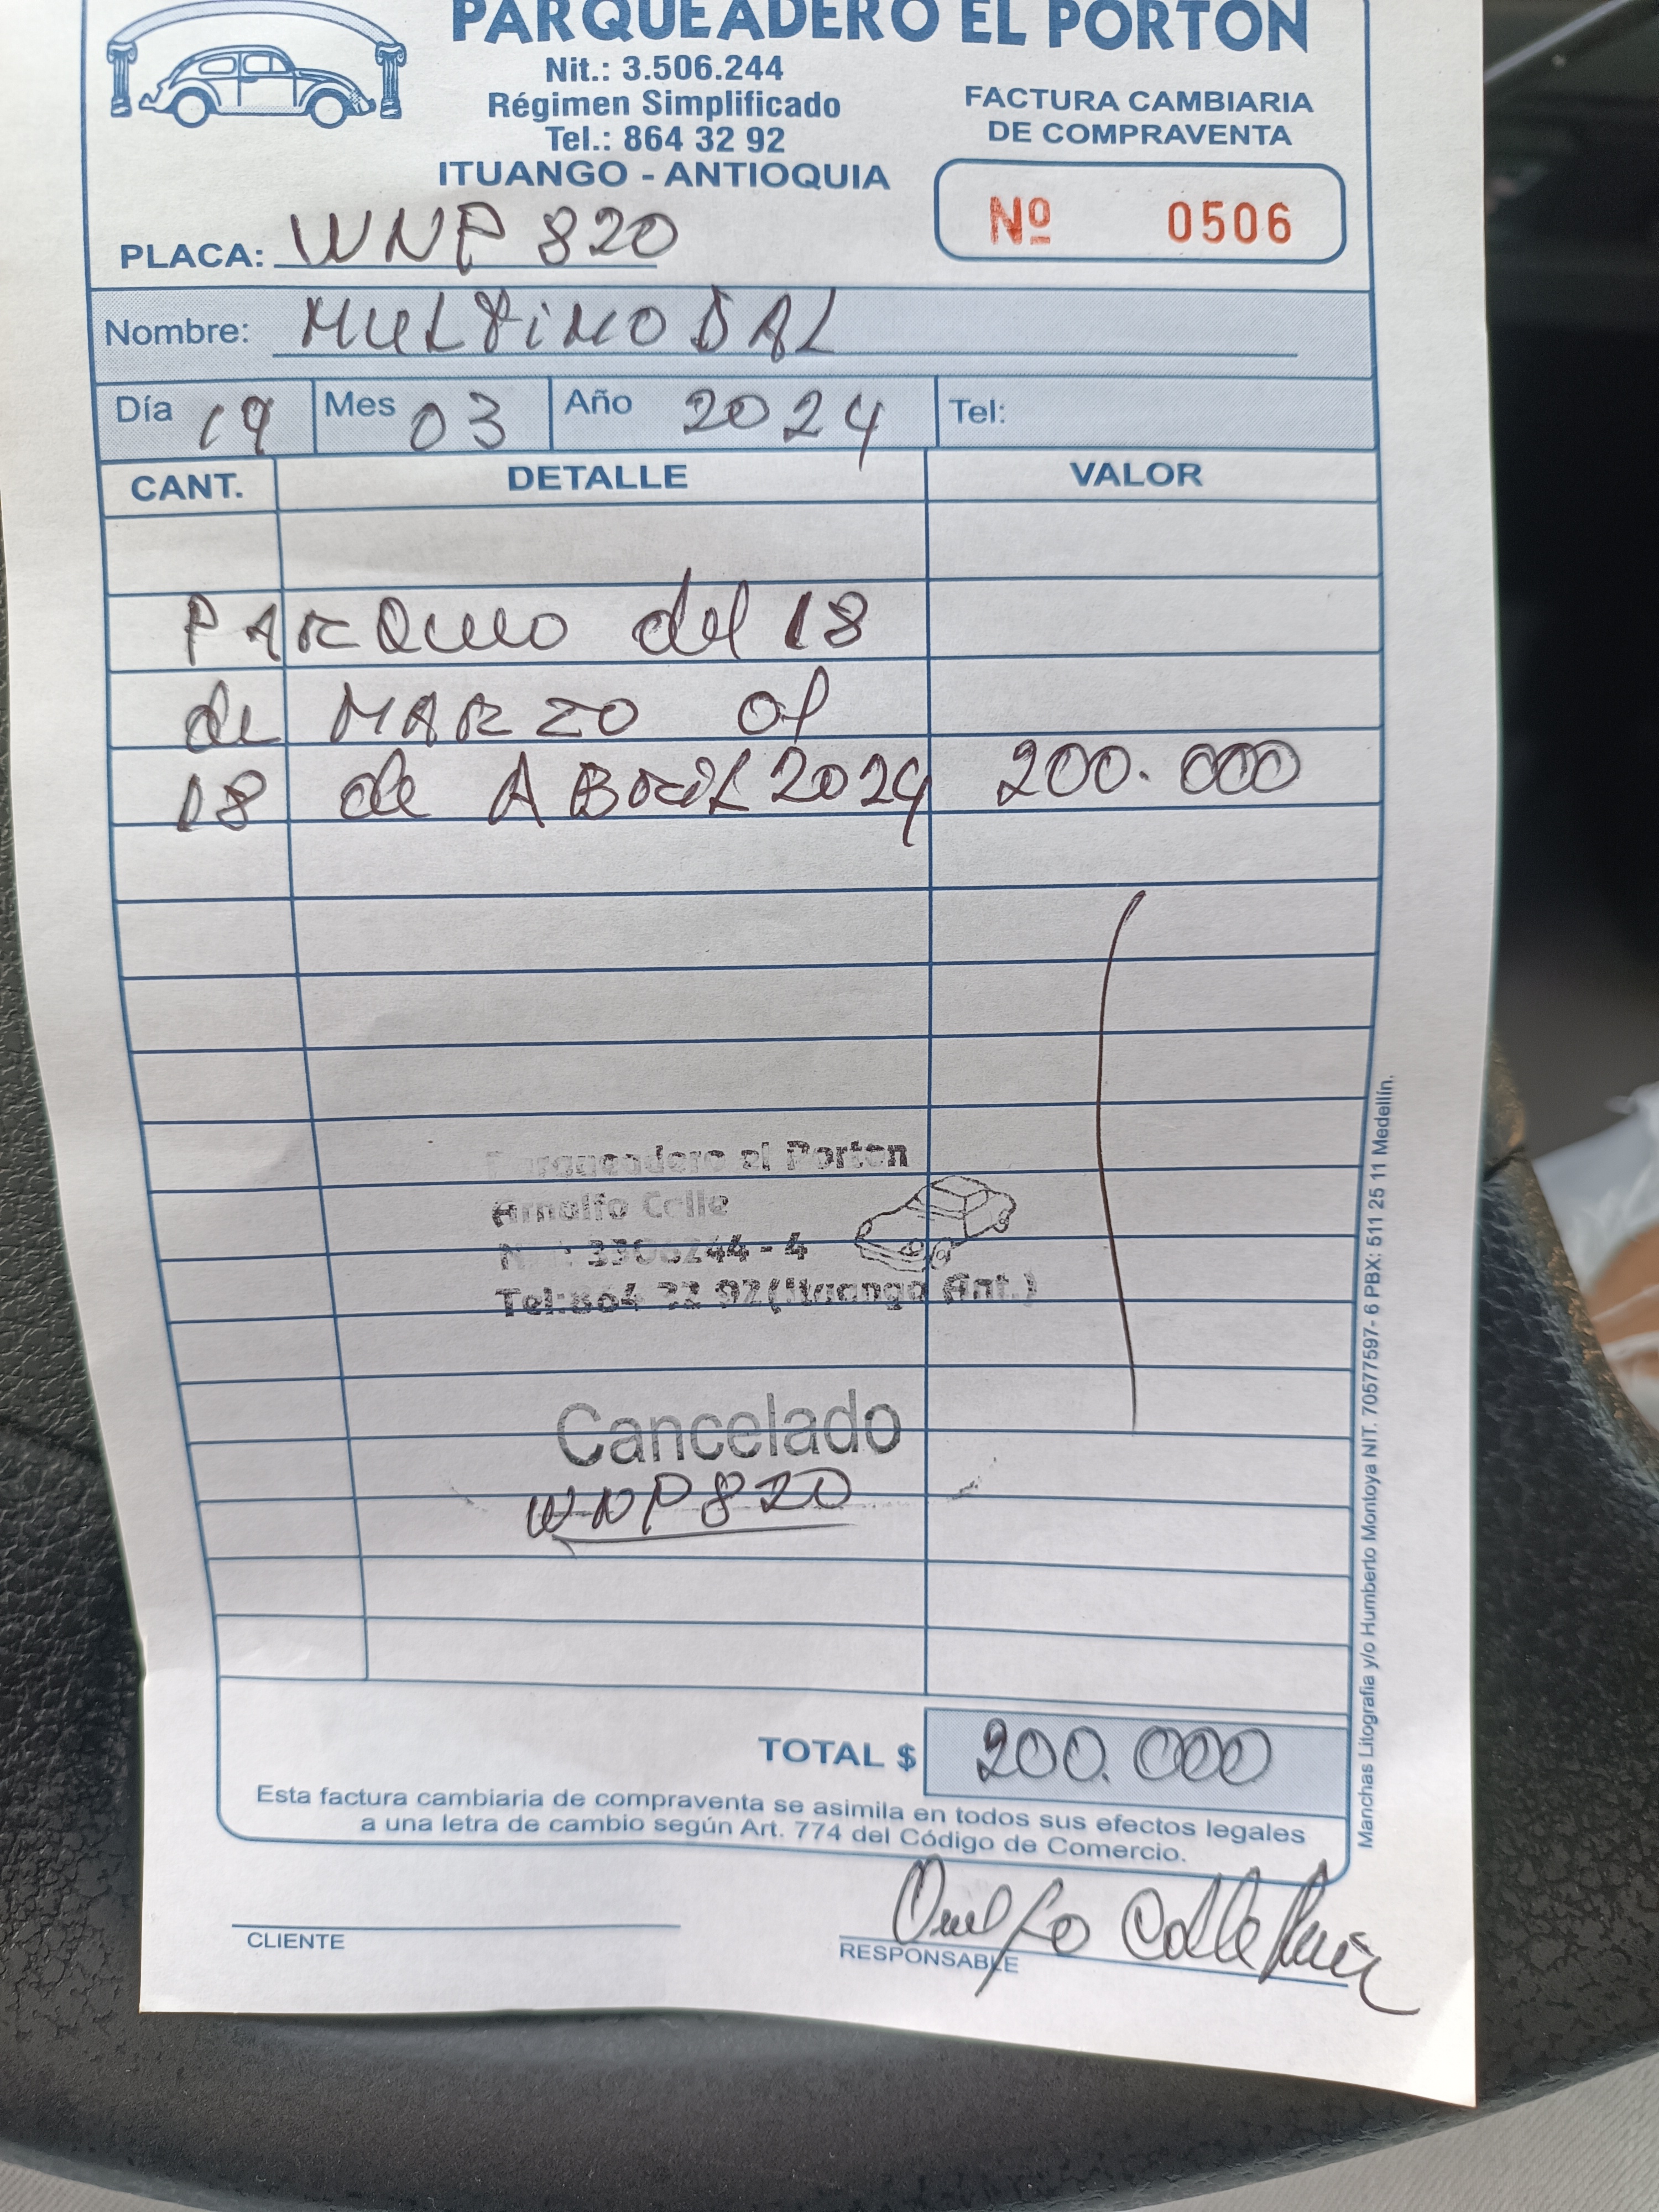 PARQUEADERO EL PORTON
Nit.: 3.506.244
Régimen Simplificado
Tel.: 864 32 92
ITUANGO - ANTIOQUIA
FACTURA CAMBIARIA
DE COMPRAVENTA
Nº 0506
PLACA: WNP 820
Nombre: MULTIMODAL
Día 19 Mes 03 Año 2024 Tel:
CANT. DETALLE VALOR
PARQUEO del 18
de MARZO al
18 de ABRIL 2024 200.000
Parqueadero el Porton
Arnulfo Calle
244 - 4
Tel: (Ituango Ant.)
Cancelado
WNP820
TOTAL $ 200.000
Esta factura cambiaria de compraventa se asimila en todos sus efectos legales
a una letra de cambio según Art. 774 del Código de Comercio.
CLIENTE
RESPONSABLE
Manchas Litografia y/o Humberto Montoya NIT. 70577597- 6 PBX: 511 25 11 Medellín.